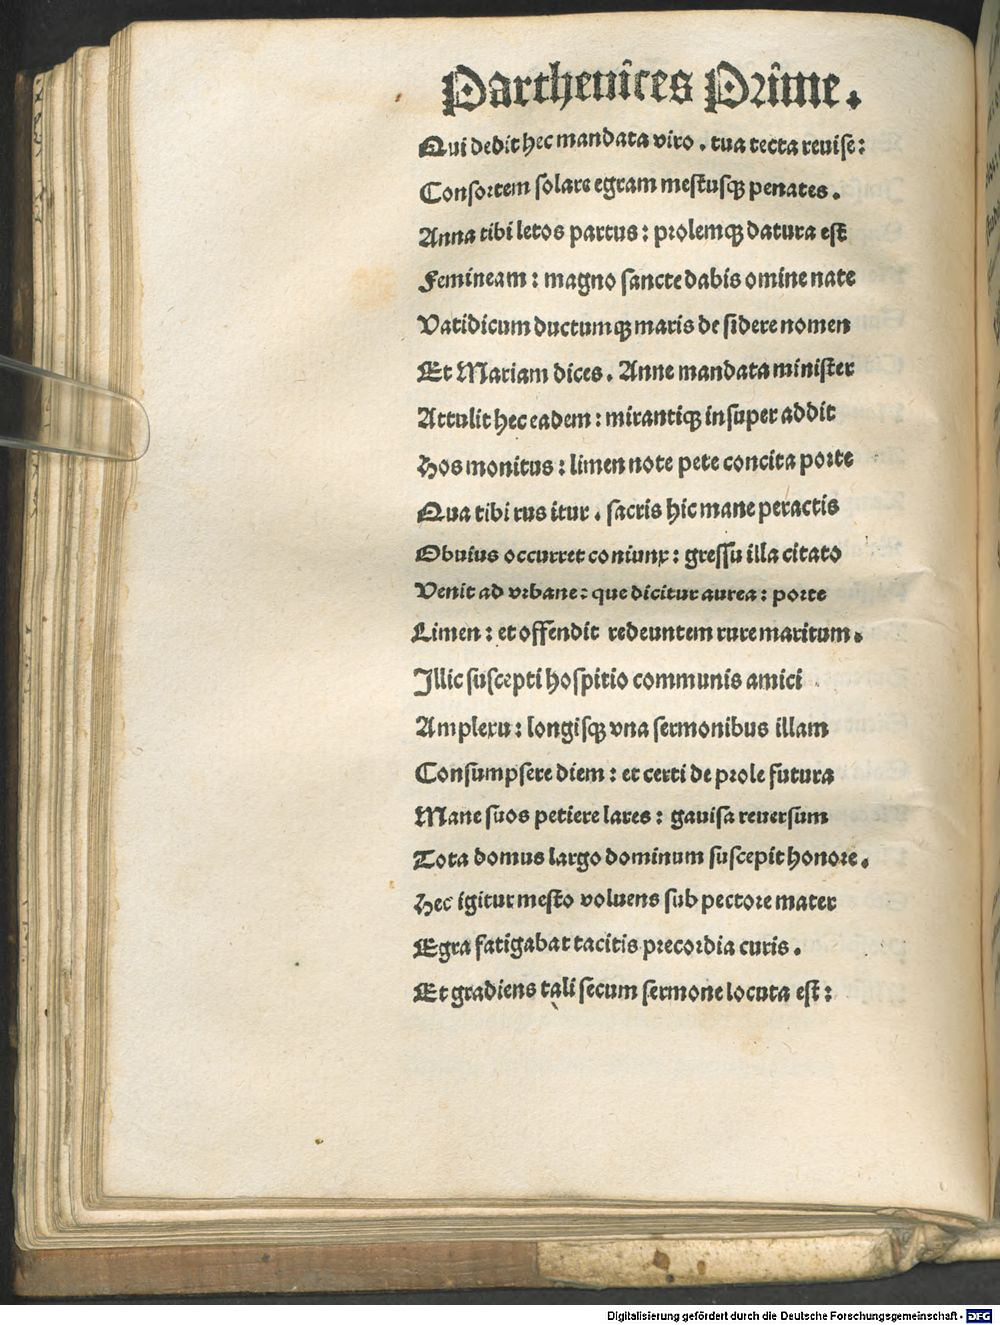 Parthenices Prime.
Qui dedit hec mandata viro. tua tecta reuise:
Consortem solare egram mestusqꝫ penates.
Anna tibi letos partus: prolemqꝫ datura est
Femineam: magno sancte dabis omine nate
Vatidicum ductumqꝫ maris de sidere nomen
Et Mariam dices. Anne mandata minister
Attulit hec eadem: mirantiqꝫ insuper addit
Hos monitus: limen note pete concita porte
Qua tibi rus itur. sacris hic mane peractis
Obuius occurret coniunx: gressu illa citato
Venit ad vrbane: que dicitur aurea: porte
Limen: et offendit redeuntem rure maritum.
Illic suscepti hospitio communis amici
Amplexu: longisqꝫ vna sermonibus illam
Consumpsere diem: et certi de prole futura
Mane suos petiere lares: gauisa reuersum
Tota domus largo dominum suscepit honore.
Hec igitur mesto voluens sub pectore mater
Egra fatigabat tacitis precordia curis.
Et gradiens tali secum sermone locuta est:
Digitalisierung gefördert durch die Deutsche Forschungsgemeinschaft - DFG